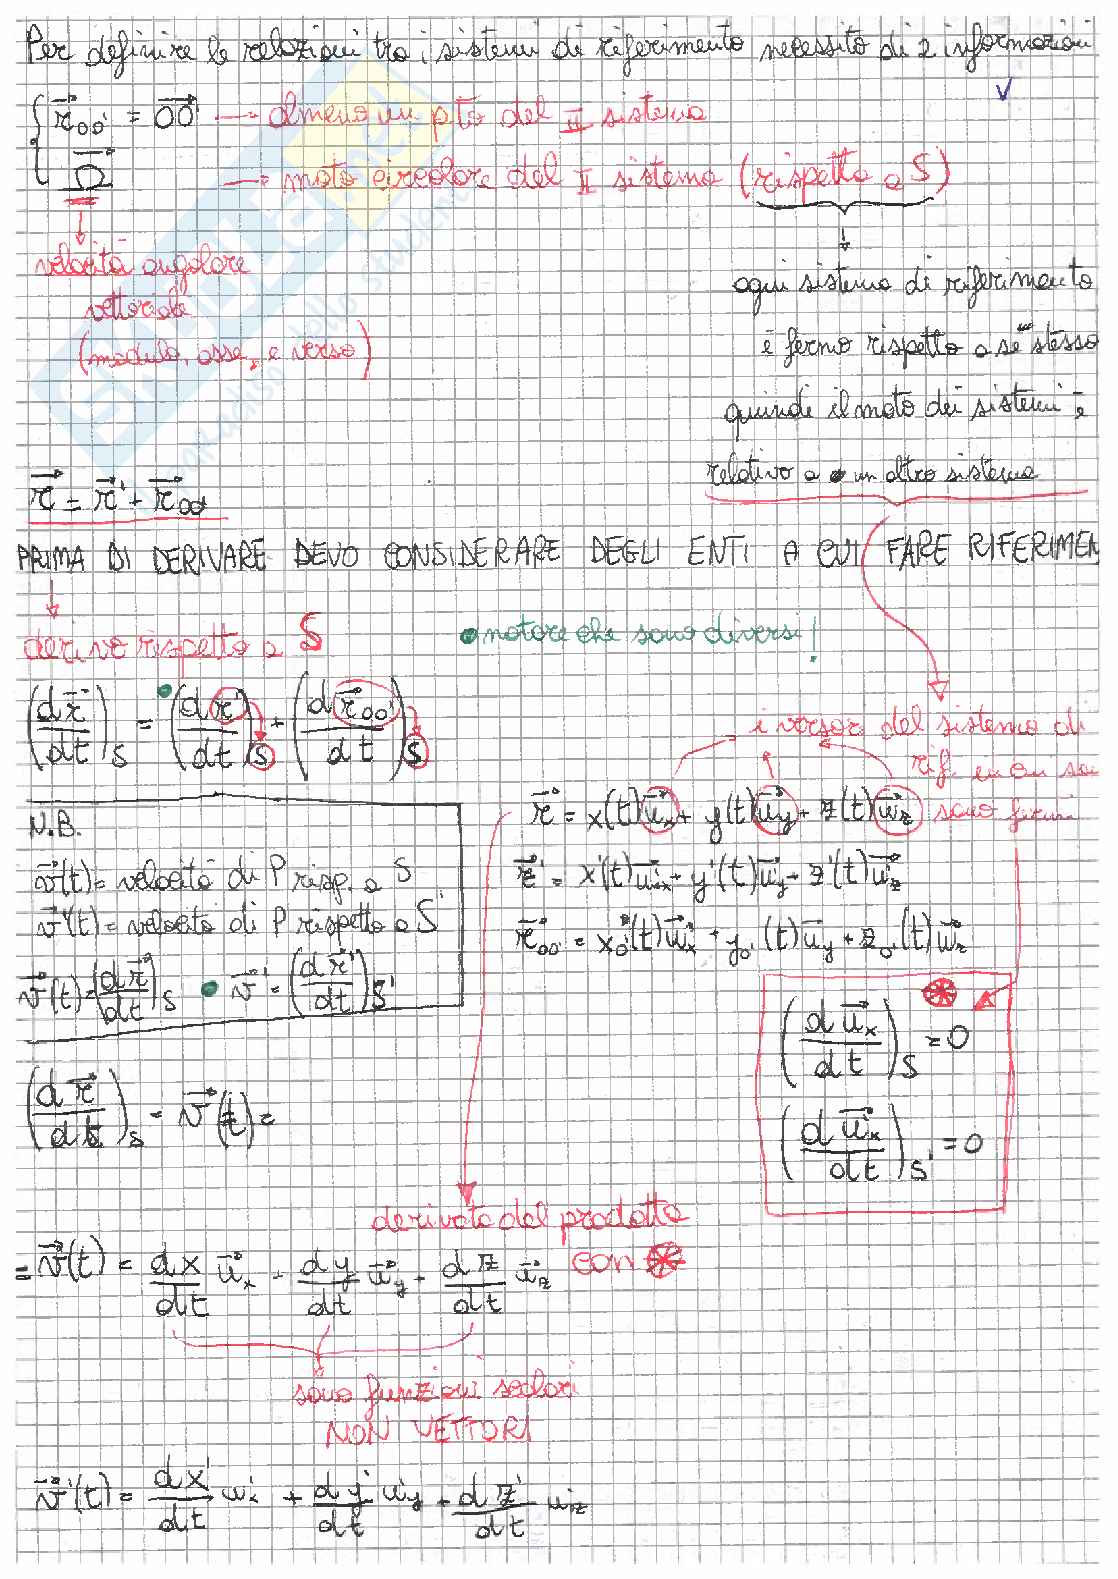 Per definire le relazioni tra i sistemi di riferimento necessito di 2 informazioni
r⃗₀₀' = OO'⃗ → almeno un pto del II sistema
Ω⃗ → moto circolare del II sistema (rispetto a S)
velocità angolare
vettoriale
(modulo, asse, e verso)
ogni sistema di riferimento
è fermo rispetto a sé stesso
quindi il moto dei sistemi è
relativo a un altro sistema
r⃗ = r⃗' + r⃗₀₀'
PRIMA DI DERIVARE DEVO CONSIDERARE DEGLI ENTI A CUI FARE RIFERIMEN
derivo rispetto a S
• notare che sono diversi!
(dr⃗/dt)S = (dr⃗'/dt)S + (dr⃗₀₀'/dt)S
i versor del sistema di
rif. in cui so
sono fermi
N.B.
v⃗(t) = velocità di P risp. a S
v⃗'(t) = velocità di P rispetto a S'
v⃗(t) = (dr⃗/dt)S • v⃗' = (dr⃗'/dt)S'
r⃗ = x(t)u⃗x + y(t)u⃗y + z(t)u⃗z
r⃗' = x'(t)u⃗'x + y'(t)u⃗'y + z'(t)u⃗'z
r⃗₀₀' = x₀'(t)u⃗x + y₀'(t)u⃗y + z₀'(t)u⃗z
(du⃗x/dt)S = 0
(du⃗'x/dt)S' = 0
(dr⃗/dt)S = v⃗(t) =
derivata del prodotto
con ⊛
= v⃗(t) = dx/dt u⃗x + dy/dt u⃗y + dz/dt u⃗z
sono funzioni scalari
NON VETTORI
v⃗'(t) = dx'/dt u'x + dy'/dt u'y + dz'/dt u'z